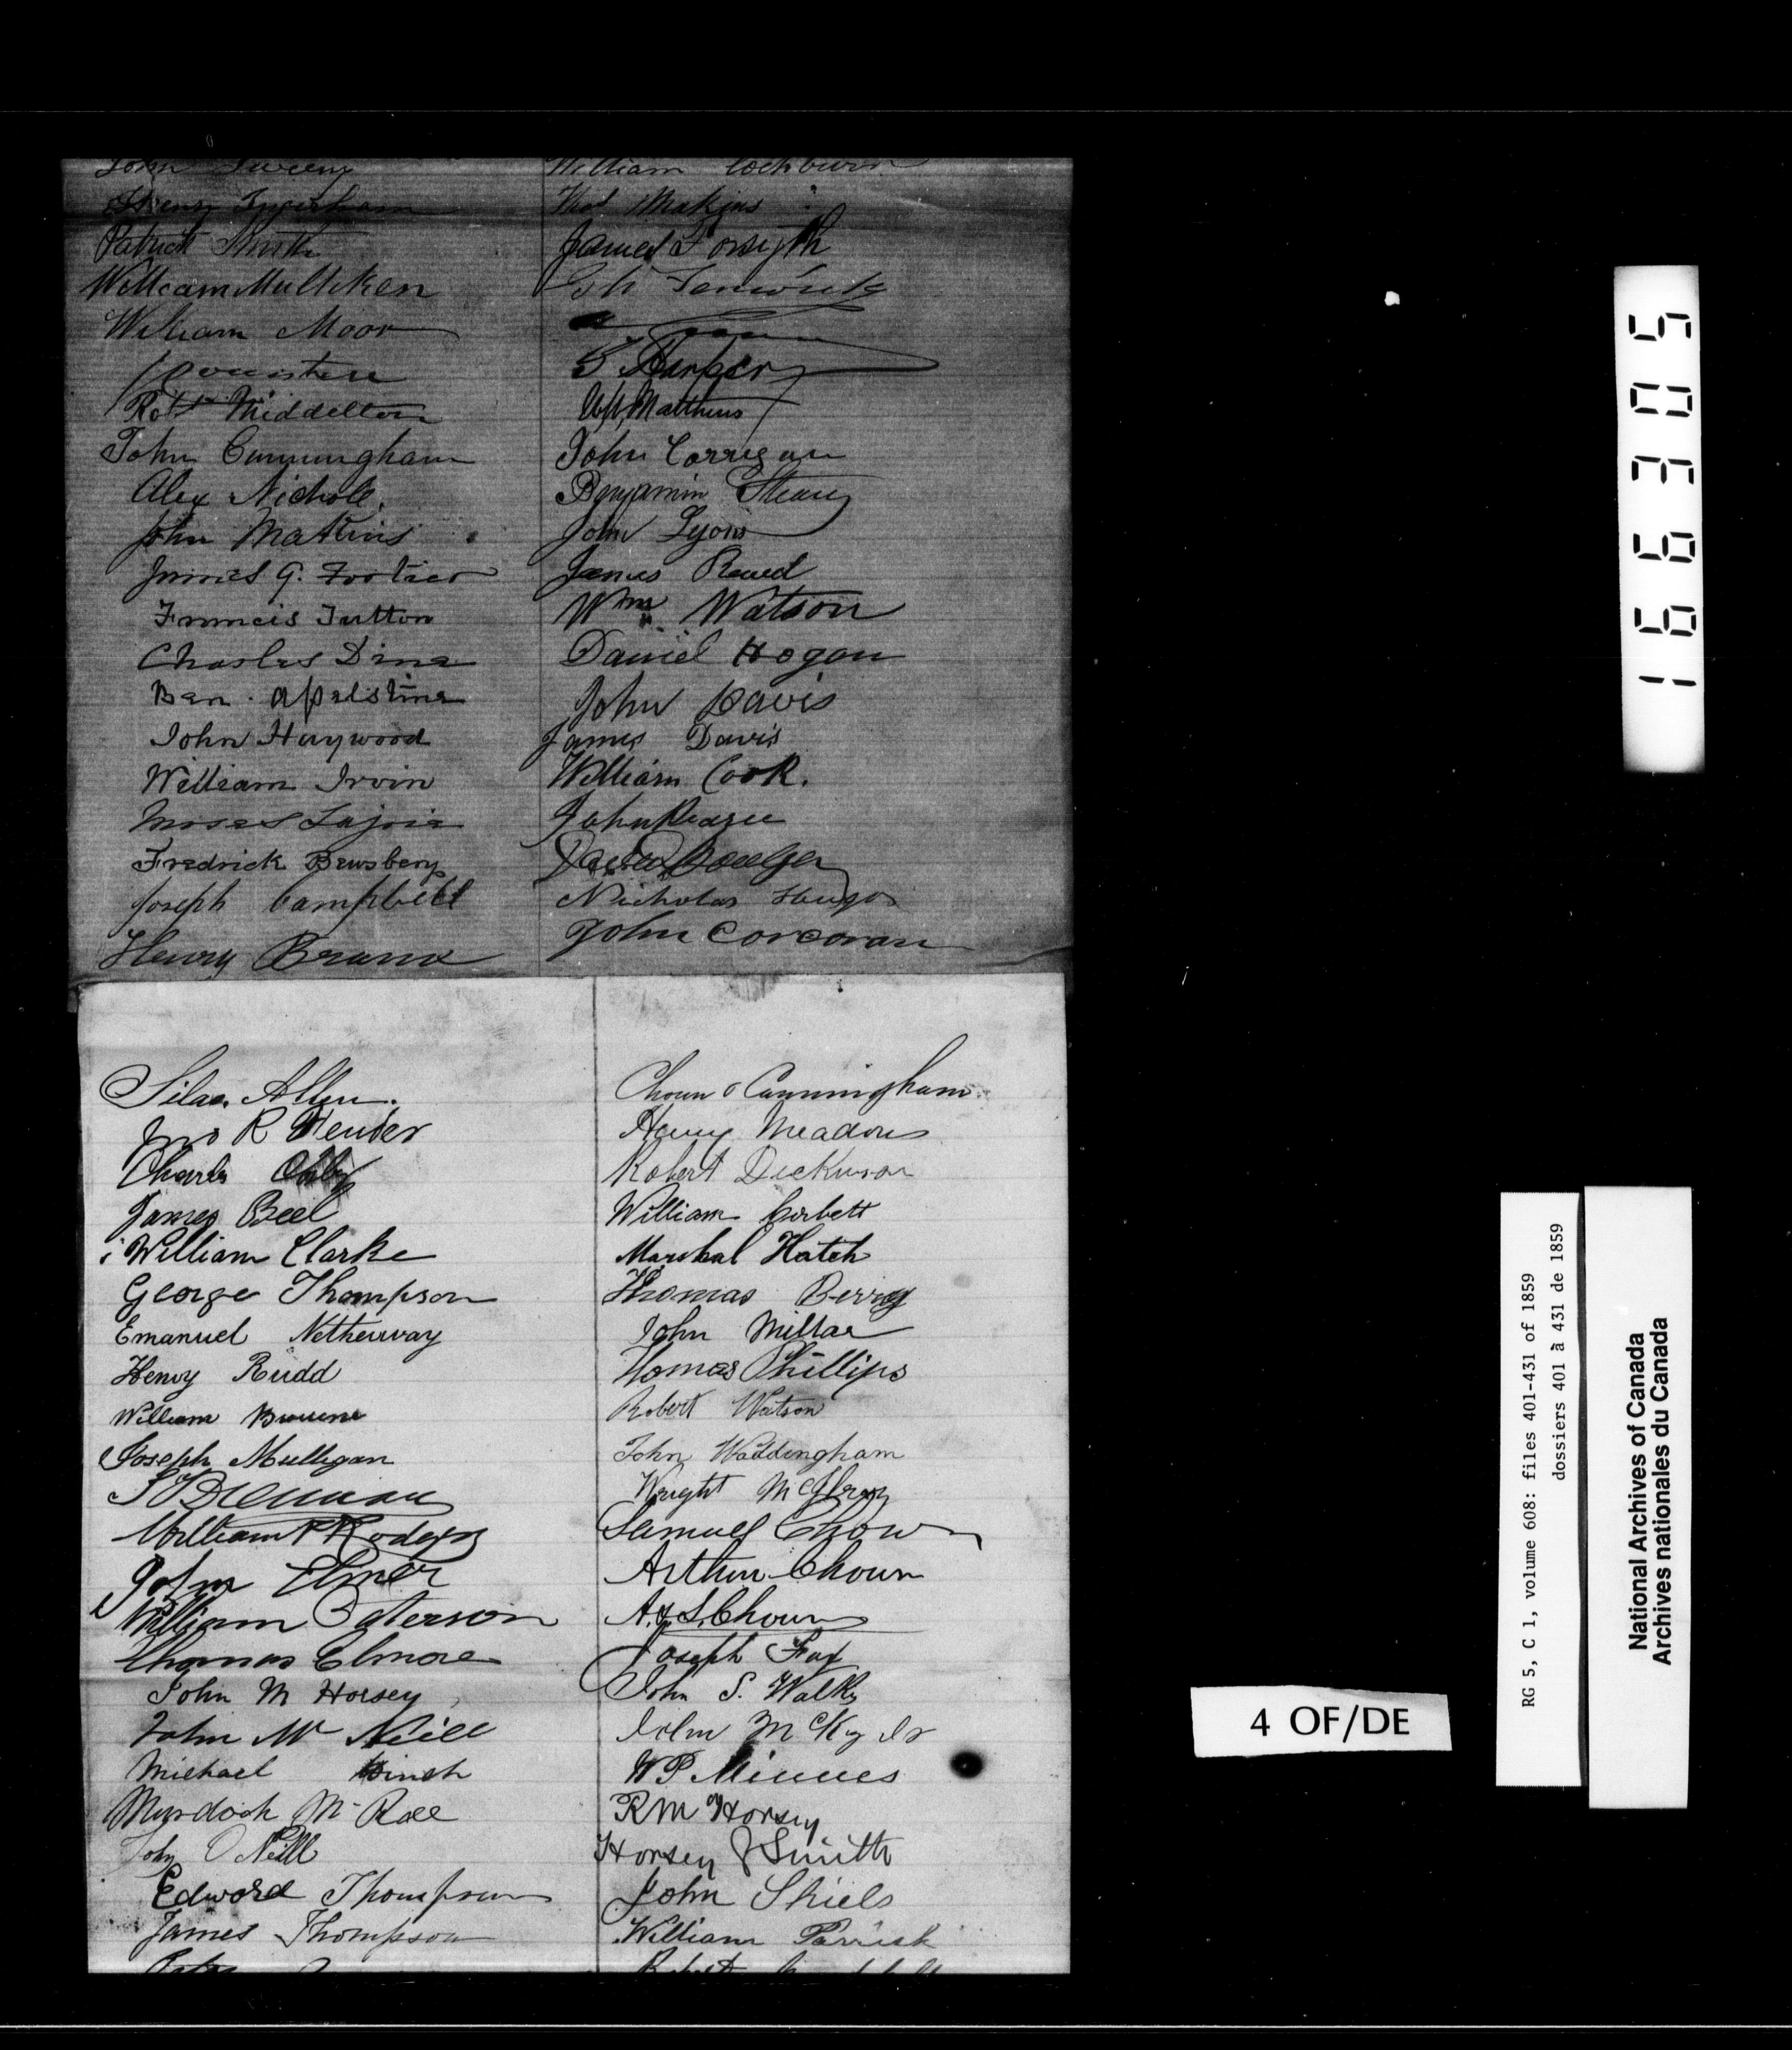 John Sweeny
Henry
Patrick Smith
William Mulliken
William Moor
Robt Middelton
John Cunningham
Alex Nichole
John Matkins
James G. Fortier
Francis Tutton
Charles Dine
Ben. apelstine
John Haywood
William Irvin
Moses Lajoie
Fredrick Bewsbery
Joseph Campbell
Henry Brand
William Cockburn
Thos Makins
James Forsyth
Harper
Wm Matthews
John Corrigan
Benjamin
John Lyons
James
Wm Watson
Daniel Hogan
John Davis
James Davis
William Cook.
John
David
Nicholas
John Corcoran
Silas Allen.
Jno R
Charles
James Beel
William Clarke
George Thompson
Emanuel Netherway
Henry Rudd
William
Joseph Mulligan
William Rodgers
John Elmer
William Paterson
Thomas Elmore
John M Horsey
John Mc Neill
Michael
Murdoch Mc Rae
John O Neill
Edward Thompson
James Thompson
Chown & Cunningham
Henry Meadows
Robert Dickinson
William Corbett
Marshal Hatch
Thomas Berry
John Millar
Thomas Phillips
Robert Watson
John Waddingham
Wright
Samuel Chown
Arthur Chown
A. & S. Chown
Joseph Fax
John S.
John McKay Jr
W P Minnes
R M Horsey
Horsey & Smith
John Shiels
William Parrish
166305
4 OF/DE
RG 5, C 1, volume 608: files 401-431 of 1859
dossiers 401 à 431 de 1859
National Archives of Canada
Archives nationales du Canada